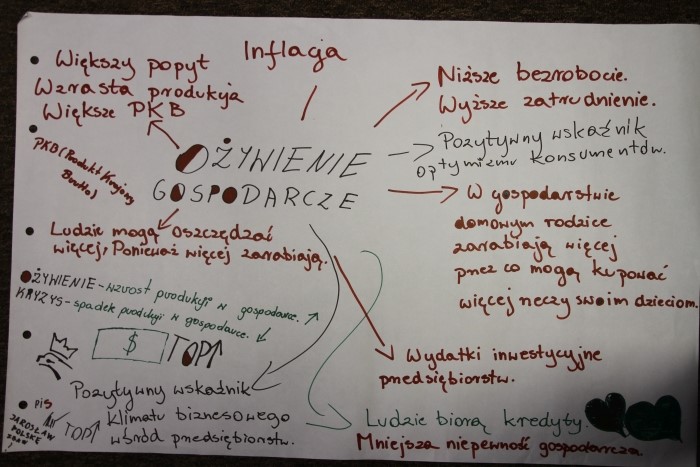 Inflacja
• Większy popyt
Wzrasta produkcja
Większe PKB
• PKB (Produkt Krajowy
Brutto)
OŻYWIENIE
GOSPODARCZE
Niższe bezrobocie.
Wyższe zatrudnienie.
Pozytywny wskaźnik
optymizmu konsumentów.
W gospodarstwie
domowym rodzice
zarabiają więcej
przez co mogą kupować
więcej rzeczy swoim dzieciom.
• Ludzie mogą oszczędzać
więcej, Ponieważ więcej zarabiają.
OŻYWIENIE - wzrost produkcji w gospodarce.
KRYZYS - spadek produkcji w gospodarce.
$ TOP
Pozytywny wskaźnik
klimatu biznesowego
wśród przedsiębiorstw.
• PiS
JAROSŁAW
POLSKĘ
TOP
Wydatki inwestycyjne
przedsiębiorstw.
Ludzie biorą kredyty.
Mniejsza niepewność gospodarcza.